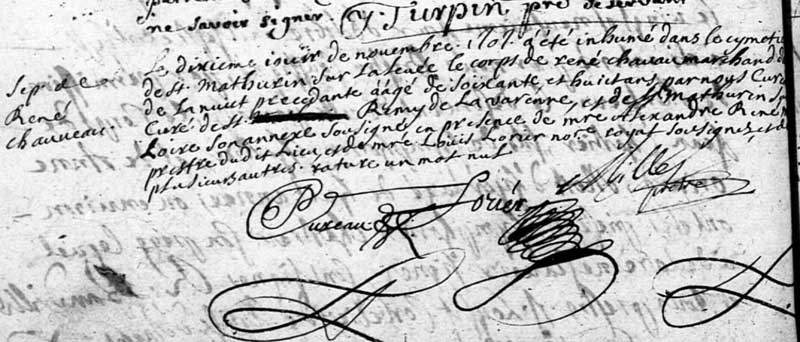 ne savoir signer. J. Turpin pre desservant
Sep. de
René
chauveau.
Le dixieme iour de novembre 1707 a été inhumé dans le cymeti
de st. Mathurin sur la Leuée le corps de rené chauau marchand
de la nuit precedante aagé de soixante et huict ans par nous Curé
Curé de st. Remy de la varenne, et de st Mathurin s
Loire son annexe soussigné, en presence de mre Alexandre René
prestre dudit Lieu, et de mre Louis Lorier nore royal soussignez, et de
plusieurs autres. rature un mot nul
Bureau Lorier Millet
prêtre